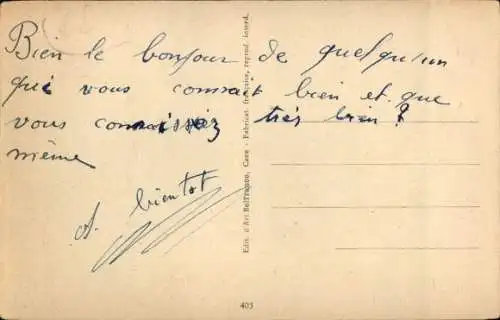 Bien le bonjour de quelqu'un
qui vous connait bien et que
vous connaissez très bien ?
même
A bientot
Edit. d'Art Belfranne, Caen - Fabricat. française, reprod. interd.
405